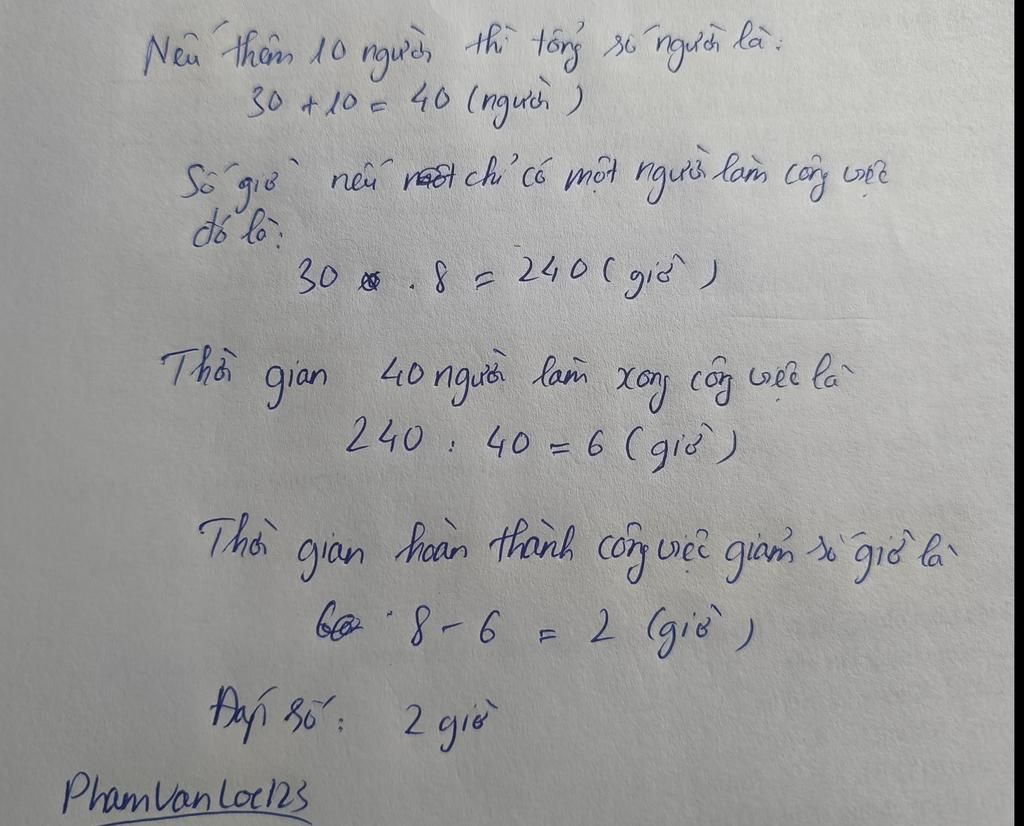 Nếu thêm 10 người thì tổng số người là:
30 + 10 = 40 (người)
Số giờ nếu chỉ có một người làm công việc
đó là:
30 . 8 = 240 (giờ)
Thời gian 40 người làm xong công việc là
240 : 40 = 6 (giờ)
Thời gian hoàn thành công việc giảm số giờ là
8 - 6 = 2 (giờ)
Đáp số: 2 giờ
PhamVanLoc123